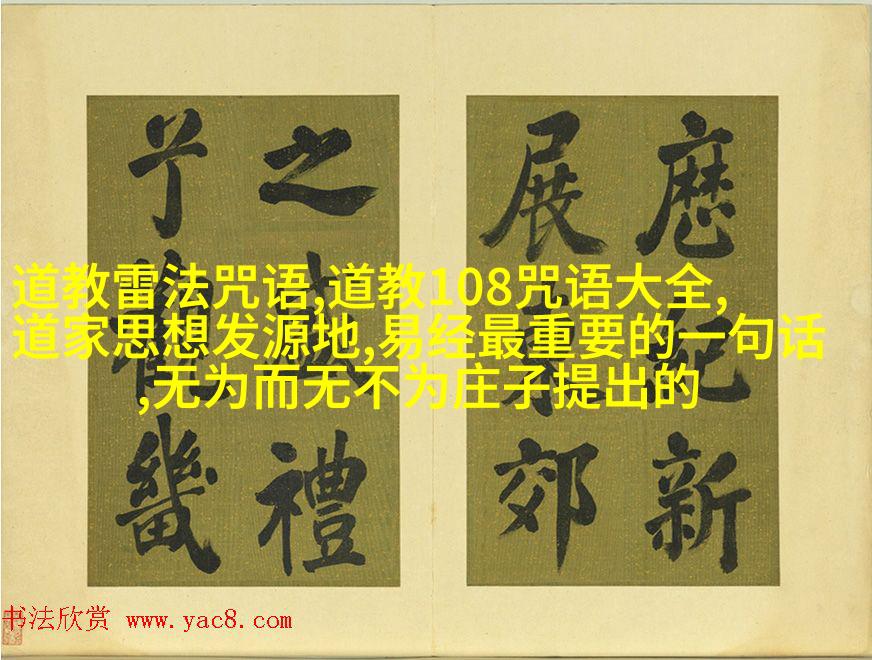 纪新
展郊
之禮
畿
道教雷法咒语,道教108咒语大全,
道家思想发源地,易经最重要的一句话
,无为而无不为庄子提出的
书法欣赏 www.yac8.com